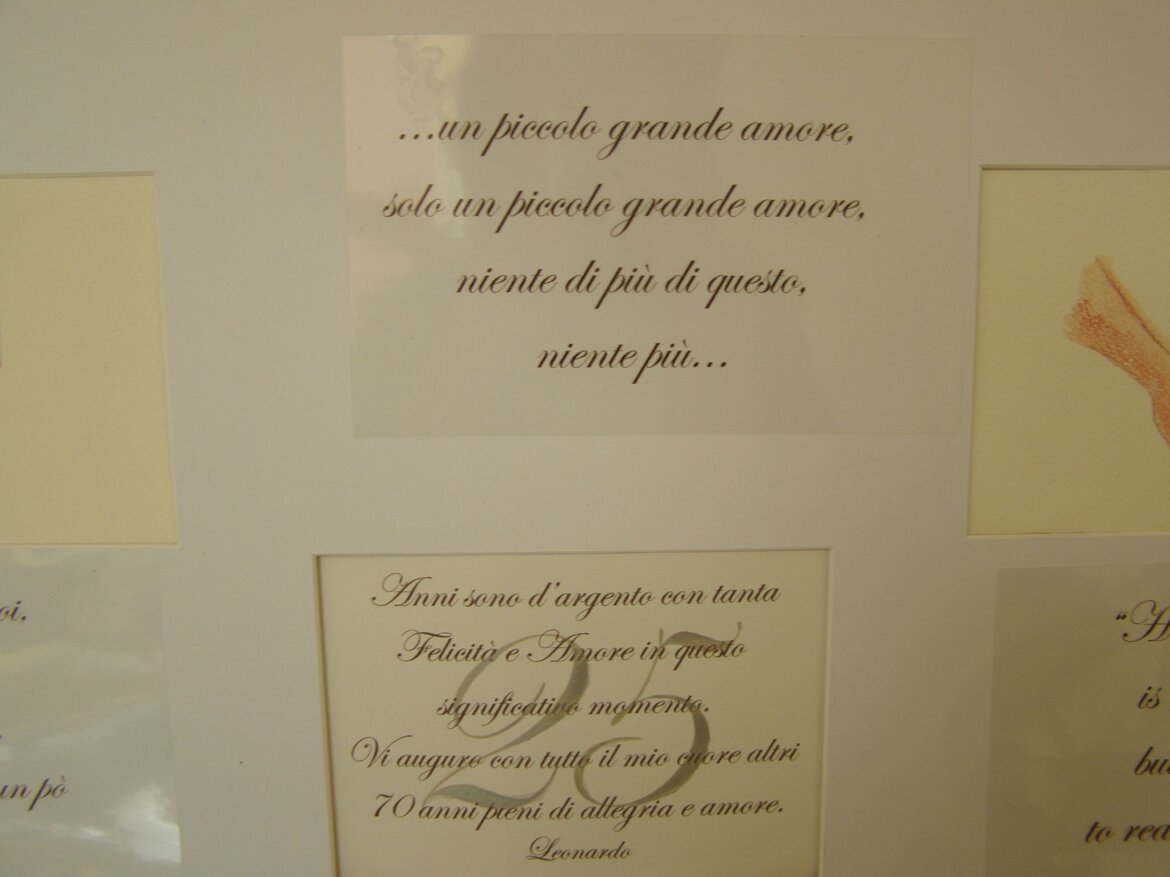 ...un piccolo grande amore,
solo un piccolo grande amore,
niente di più di questo,
niente più...
Anni sono d'argento con tanta
Felicità e Amore in questo
significativo momento.
Vi auguro con tutto il mio cuore altri
70 anni pieni di allegria e amore.
Leonardo
25
un pò
is
to